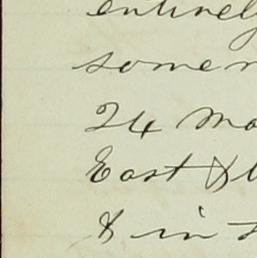 entirely
somer
24 Mo
East &
& in